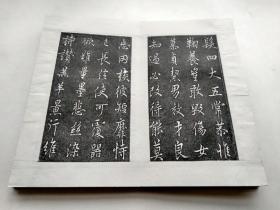 髮四大五常恭惟
鞠養豈敢毀傷女
慕貞絜男效才良
知過必改得能莫
忘罔談彼短靡恃
己長信使可覆器
欲難量墨悲絲染
詩讚羔羊景行維